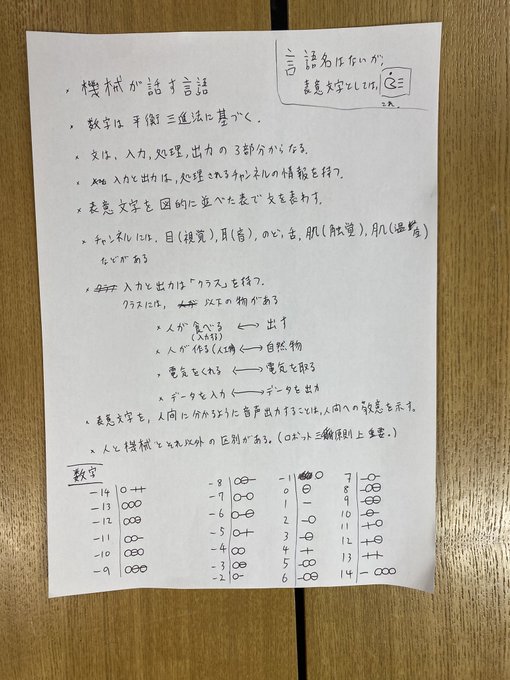 言語名はないが、
表意文字としては、
これ
× 機械が話す言語
× 数字は平衡三進法に基づく.
× 文は、入力,処理,出力の3部分からなる.
× 入力と出力は,処理されるチャンネルの情報を持つ.
× 表意文字を図的に並べた表で文を表わす.
× チャンネルには、目(視覚),耳(音),のど,舌,肌(触覚),肌(温度)
などがある
× 入力と出力は「クラス」を持つ.
クラスには, 以下の物がある
× 人が食べる ⟷ 出す
(入力する)
× 人が作る(人工物) ⟷ 自然物
× 電気をくれる ⟷ 電気を取る
× データを入力 ⟷ データを出力
× 表意文字を,人間に分かるように音声出力することは,人間への敬意を示す.
× 人と機械とそれ以外の区別がある.(ロボット三原則上重要.)
数字
-14 ○-++
-13 ○○○
-12 ○○⊖
-11 ○○-
-10 ○⊖○
-9 ○⊖⊖
-8 ○⊖-
-7 ○-○
-6 ○-⊖
-5 ○-+
-4 ○○
-3 ○⊖
-2 ○-
-1 ○
0 ⊖
1 -
2 -○
3 -⊖
4 +
5 -○○
6 -○⊖
7 -○-
8 -⊖○
9 -⊖⊖
10 -⊖-
11 +○
12 +⊖
13 ++
14 -○○○